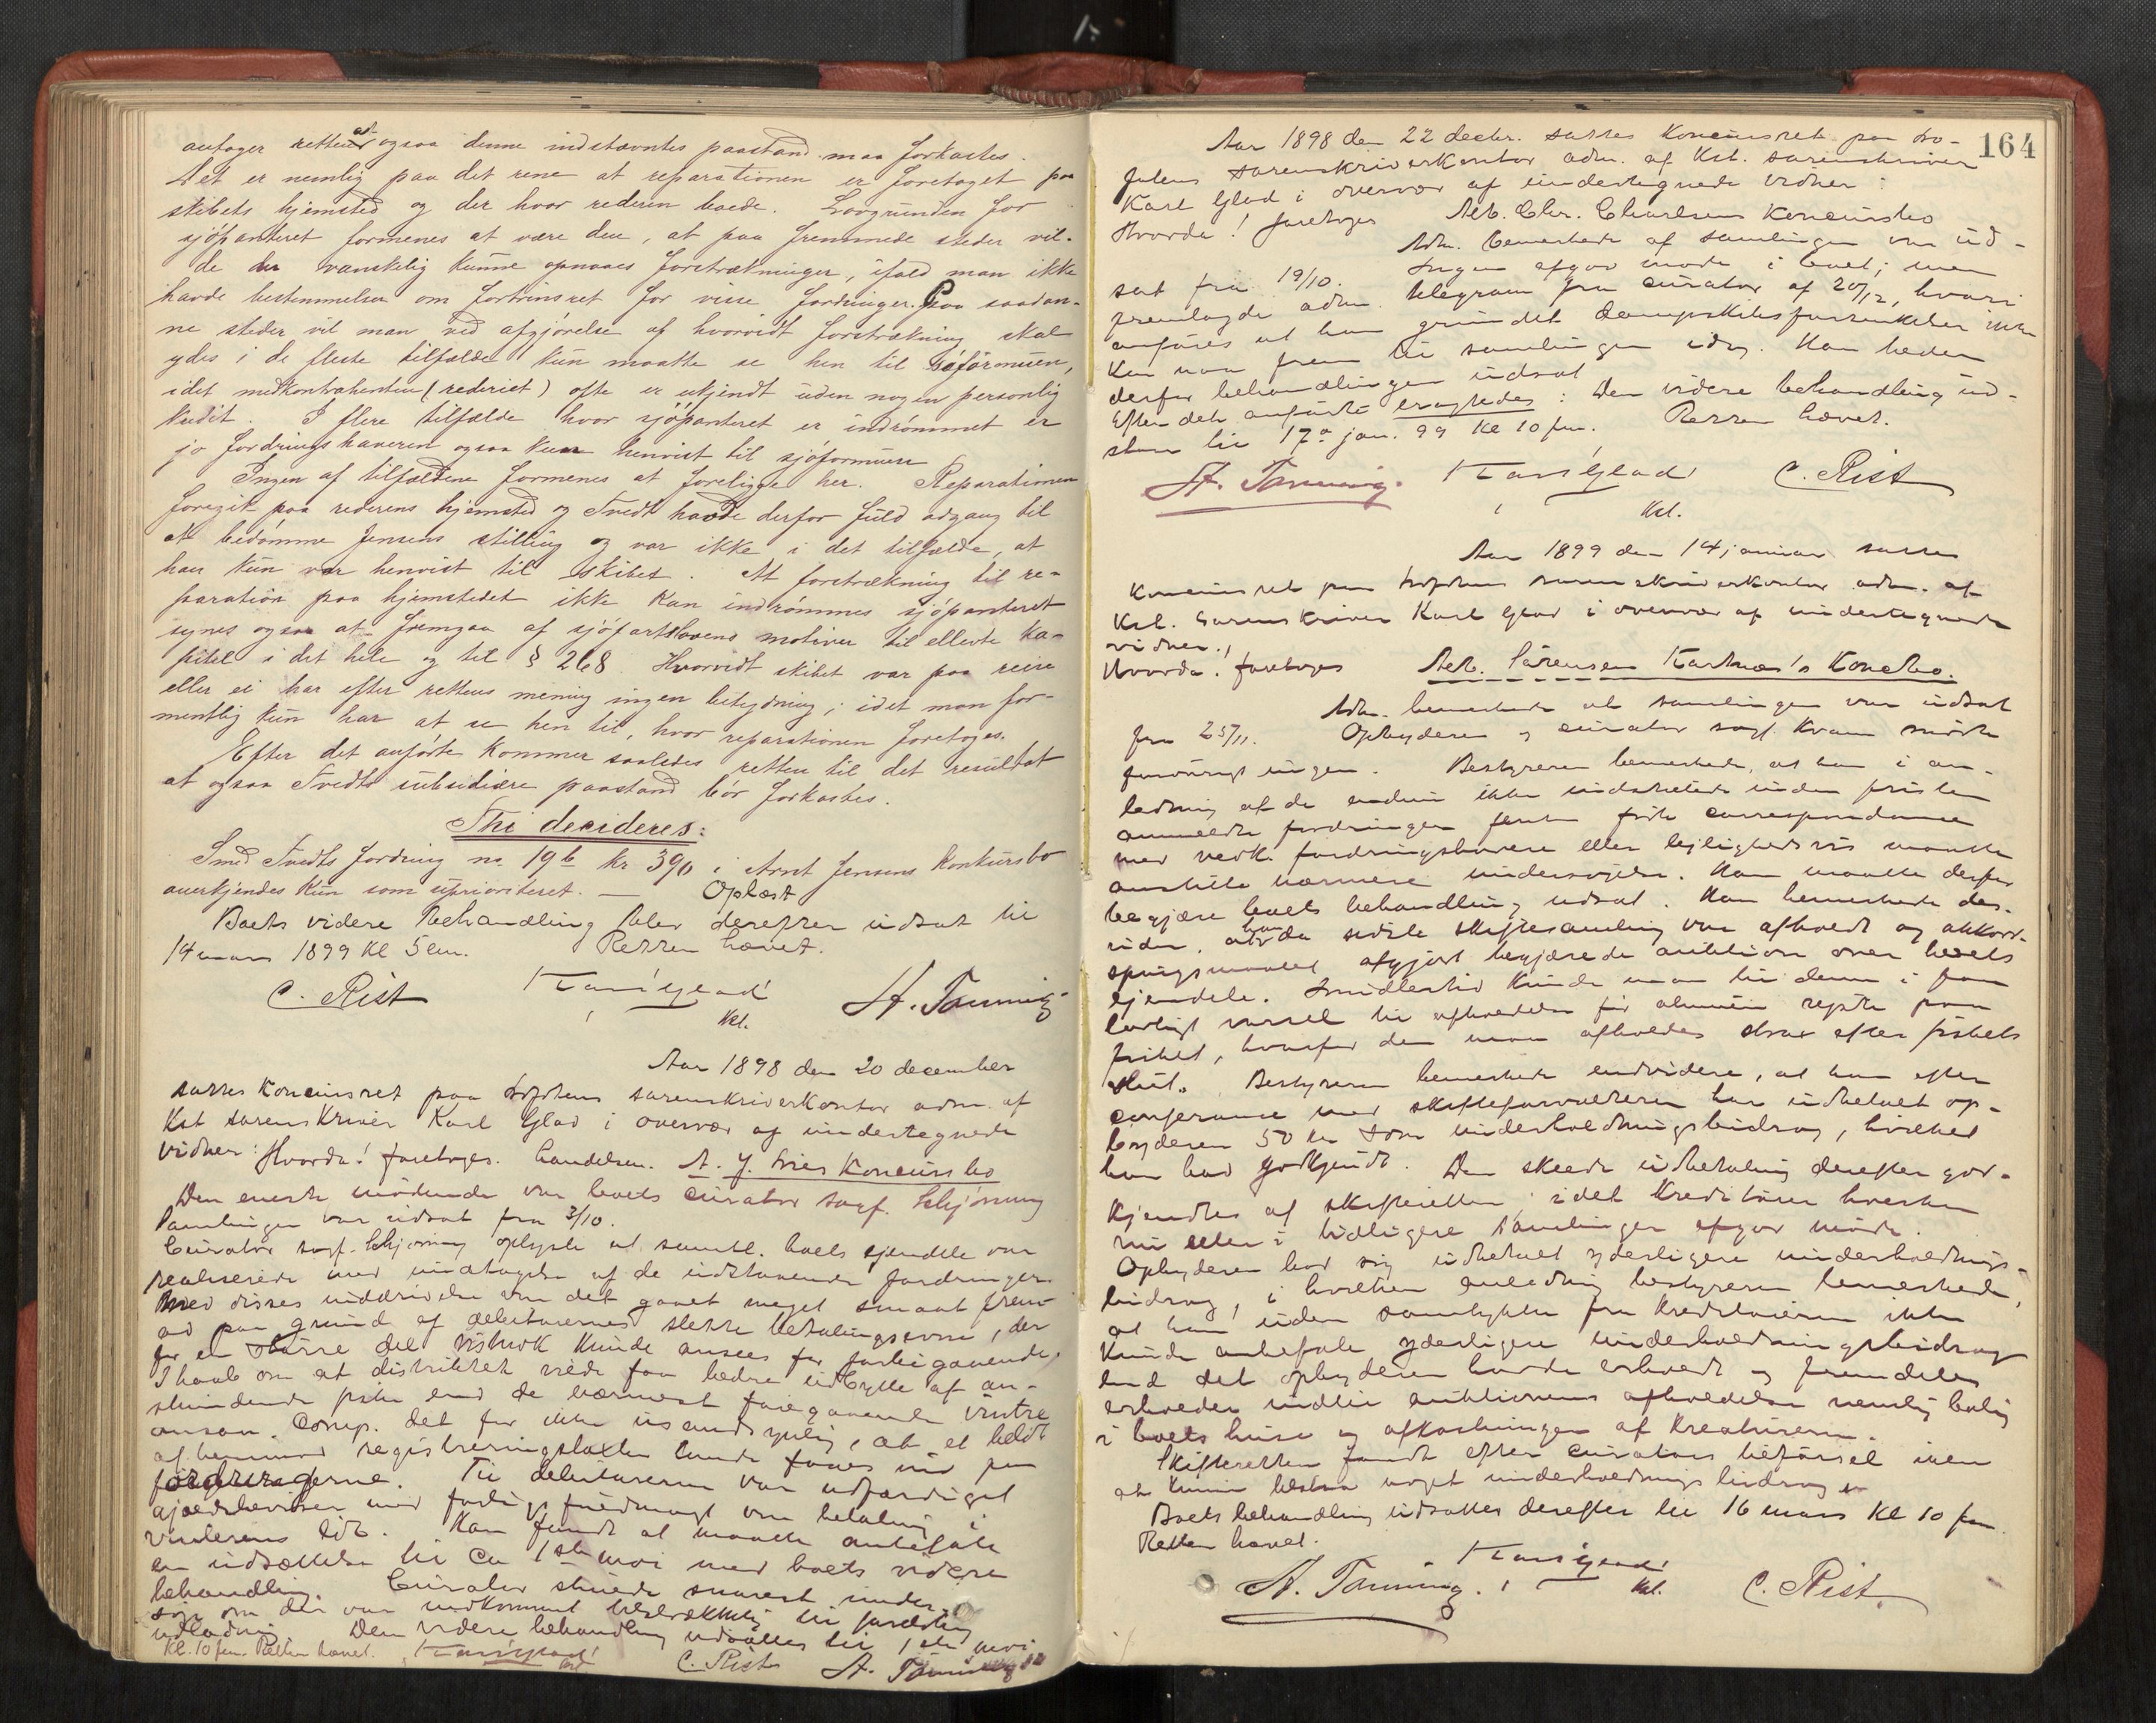 antager retten at ogsaa denne indstævntes paastand maa forkastes.
Det er nemlig paa det rene at reparationen er foretaget paa
skibets hjemsted og der hvor rederen boede. Lovgrunden for
sjøpanteret formenes at være den, at paa fremmede steder vil-
de der vanskelig kunne opnaaes forstrækninger, ifald man ikke
havde bestemmelser om fortrinsret for visse fordringer. Paa saadan-
ne steder vil man ved afgjørelse af hvorvidt forstrækning skal
ydes i de fleste tilfælde kun maatte se hen til søformuen,
idet medkontrahenten (rederiet) ofte er ukjendt uden nogen personlig
kredit. I flere tilfælde hvor sjøpanteret er indrømmet er
jo fordringshaveren ogsaa kun henvist til sjøformuen
Ingen af tilfældene formenes at foreligge her. Reparationen
foregik paa rederens hjemsted og Tvedt havde derfor fuld adgang til
at bedømme Jensens stilling og var ikke i det tilfælde, at
han kun var henvist til skibet. At forstrækning til re-
paration paa hjemstedet ikke kan indrømmes sjøpanteret
synes ogsaa at fremgaa af sjøfartslovens motiver til ellevte ka-
pitel i det hele og til § 268 Hvorvidt skibet var paa reise
eller ei har efter rettens mening ingen betydning; idet man for-
mentlig kun har at se hen til, hvor reparationen foretoges.
Efter det anførte kommer saaledes retten til det resultat
at ogsaa Tvedts subsidiære paastand bør forkastes.
Thi decideres:
Smed Tvedts fordring no 19b kr 390 i Arnt Jensens konkursbo
anerkjendes kun som uprioriteret. — Oplæst
Boets videre behandling blev derefter udsat til
14 mars 1899 kl 5 em. Retten hævet.
C. Rist Karl Glad A. Tønning
Kst.
Aar 1898 den 20 december
sattes koncursret paa Lofotens sorenskriverkontor adm. af
Kst sorenskriver Karl Glad i overvær af undertegnede
vidner: Hvorda! foretoges. handelsm. A. J. Friis Koncursbo
Den eneste mødende var boets curator sagf. Schjøning
Samlingen var udsat fra 3/10.
Curator sagf. Schjøning oplyste at samtl. boets ejendele var
realiserede med undtagelse af de udstaaende fordringer.
Med disses inddrivelse var det gaaet meget smaat frem-
ad paa grund af debitorernes slette betalingsevne, der
for en større del kunde ansees for
I haab om at distriktet vilde faa bedre udbytte af an-
stundende fiske end de nærmest foregaaende vintre
ansaa Comp. det for ikke usandsynlig, at et beløb
registreringstaxten kunde faaes ind paa
fordringerne. Til debitorerne var udfærdiget
gjældsbeviser med fuldmagt om betaling i
vinterens løb. Han fandt at maatte anbefale
en udsættelse til ca 1ste mai med boets videre
behandling. Curator skulde snarest under-
søge om der var indkommet tilstrækkelig til
udlodning. Den videre behandling udsattes til 1ste mai
Kl. 10 fm. Retten hævet. Karl Glad C. Rist A. Tønning
Kst
164
Aar 1898 den 22 decbr. sattes Koncursret paa Lo-
fotens sorenskriverkontor adm. af Kst. sorenskriver
Karl Glad i overvær af undertegnede vidner:
Hvorda! foretoges Chr. Koncursbo
Adm. bemerkede at samlingen var ud-
sat fra 19/10. Ingen afgav møde i boet; men
fremlagde adm. telegram fra curator af 20/12, hvori
anføres at han grundet dampskibsforsinkelser ikke
kan naa frem til samlingen idag. Han beder
derfor behandlingen udsat
Efter det anførte eragtedes: Den videre behandling ud-
staar til 17de jan. 99 Kl 10 fm. Retten hævet.
A. Tønning. Karl Glad C. Rist
Kst.
Aar 1899 den 14 januar sattes
Koncursret paa Lofotens sorenskriverkontor adm. af
Kst. Sorenskriver Karl Glad i overvær af undertegnede
vidner.,
Hvorda! foretoges Sørensen Koncbo.
Adm. bemerkede at samlingen var udsat
fra 25/11. Opbyderen og curator sagf. Kvam mødte
forøvrigt ingen. Bestyreren bemerkede, at han i an-
ledning af de endnu ikke inden fristen
anmeldte fordringer først correspondance
med vedk. fordringshavere eller lejlighedsvis maatte
anstille nærmere undersøgelse. Han maatte derfor
begjære boets behandling udsat. Han bemerkede des-
uden at han da sidste skiftesamling var afholdt og akkord-
spørgsmaalet afgjort begjærede auktion over boets
ejendele. Imidlertid kunde man til denne i faa
lovligt varsel til afholdelse før almuen rejste paa
fisket, hvorfor den maa afholdes strax efter fiskets
slut. Bestyreren bemerkede endvidere, at han efter
conferance med skifteforvalteren har udbetalt op-
byderen 50 kr som underholdningsbidrag, hvilket
han bad godkjendt. Den skeede udbetaling derefter god-
kjendtes af skifteretten, idet Kreditorer hverken
nu eller i tidligere samlinger afgav møde.
Opbyderen bad sig udbetalt yderligere underholdnings-
bidrag, i hvilken anledning bestyreren bemerkede,
at han uden samtykke fra Kreditorerne ikke
kunde anbefale yderligere underholdningsbidrag
end det opbyderen havde erholdt og fremdeles
erholder indtil auktionens afholdelse nemlig bolig
i boets huse og afkastningen af kreaturerne.
Skifteretten fandt efter curators tilførsel ikke
at kunne tilstaa noget underholdningsbidrag
Boets behandling udsattes derefter til 16 mars Kl 10 fm.
Retten hævet.
A. Tønning. Karl Glad C. Rist.
Kst.